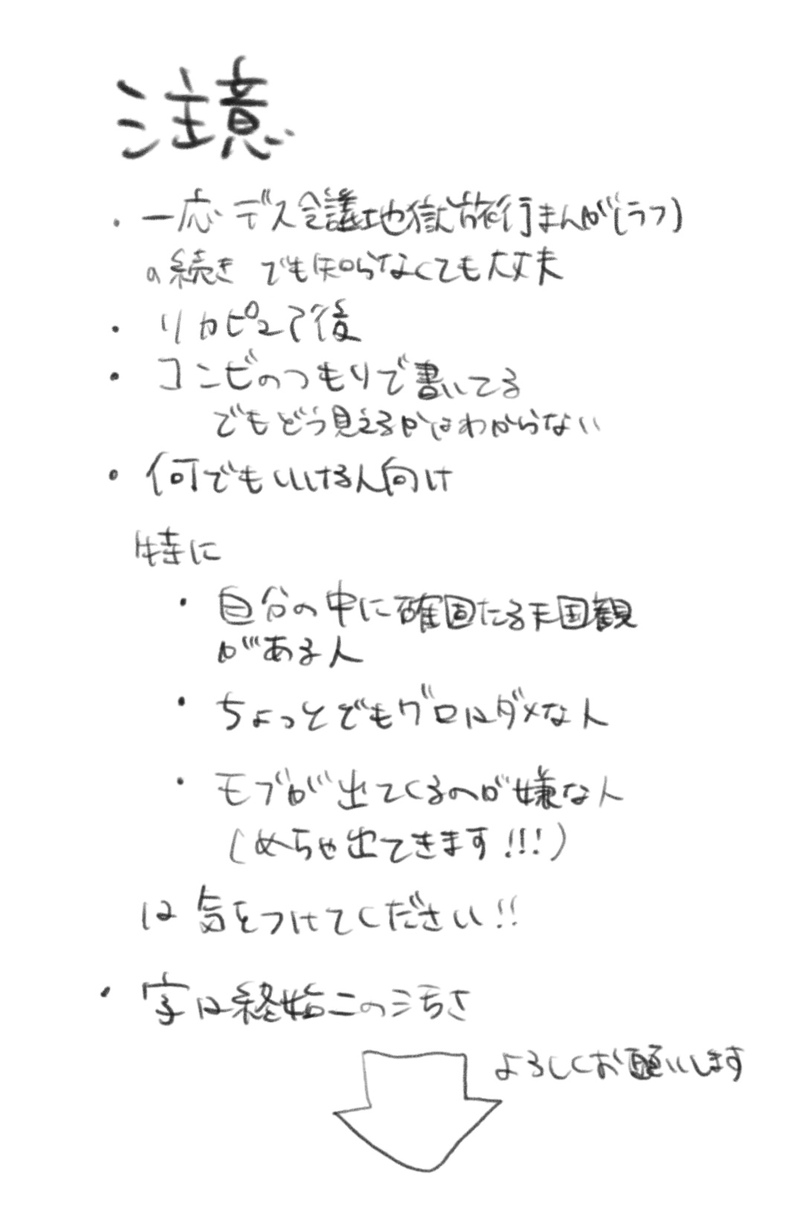 注意
・一応デス会議地獄旅行まんが(ラフ)
の続き でも知らなくても大丈夫
・リカピュア後
・コンビのつもりで書いてる
でもどう見えるかはわからない
・何でもいける人向け
特に
・自分の中に確固たる天国観
がある人
・ちょっとでもグロはダメな人
・モブが出てくるのが嫌な人
(めちゃ出てきます!!!)
は気をつけてください!!
・字は終始このきちゃなさ
よろしくお願いします